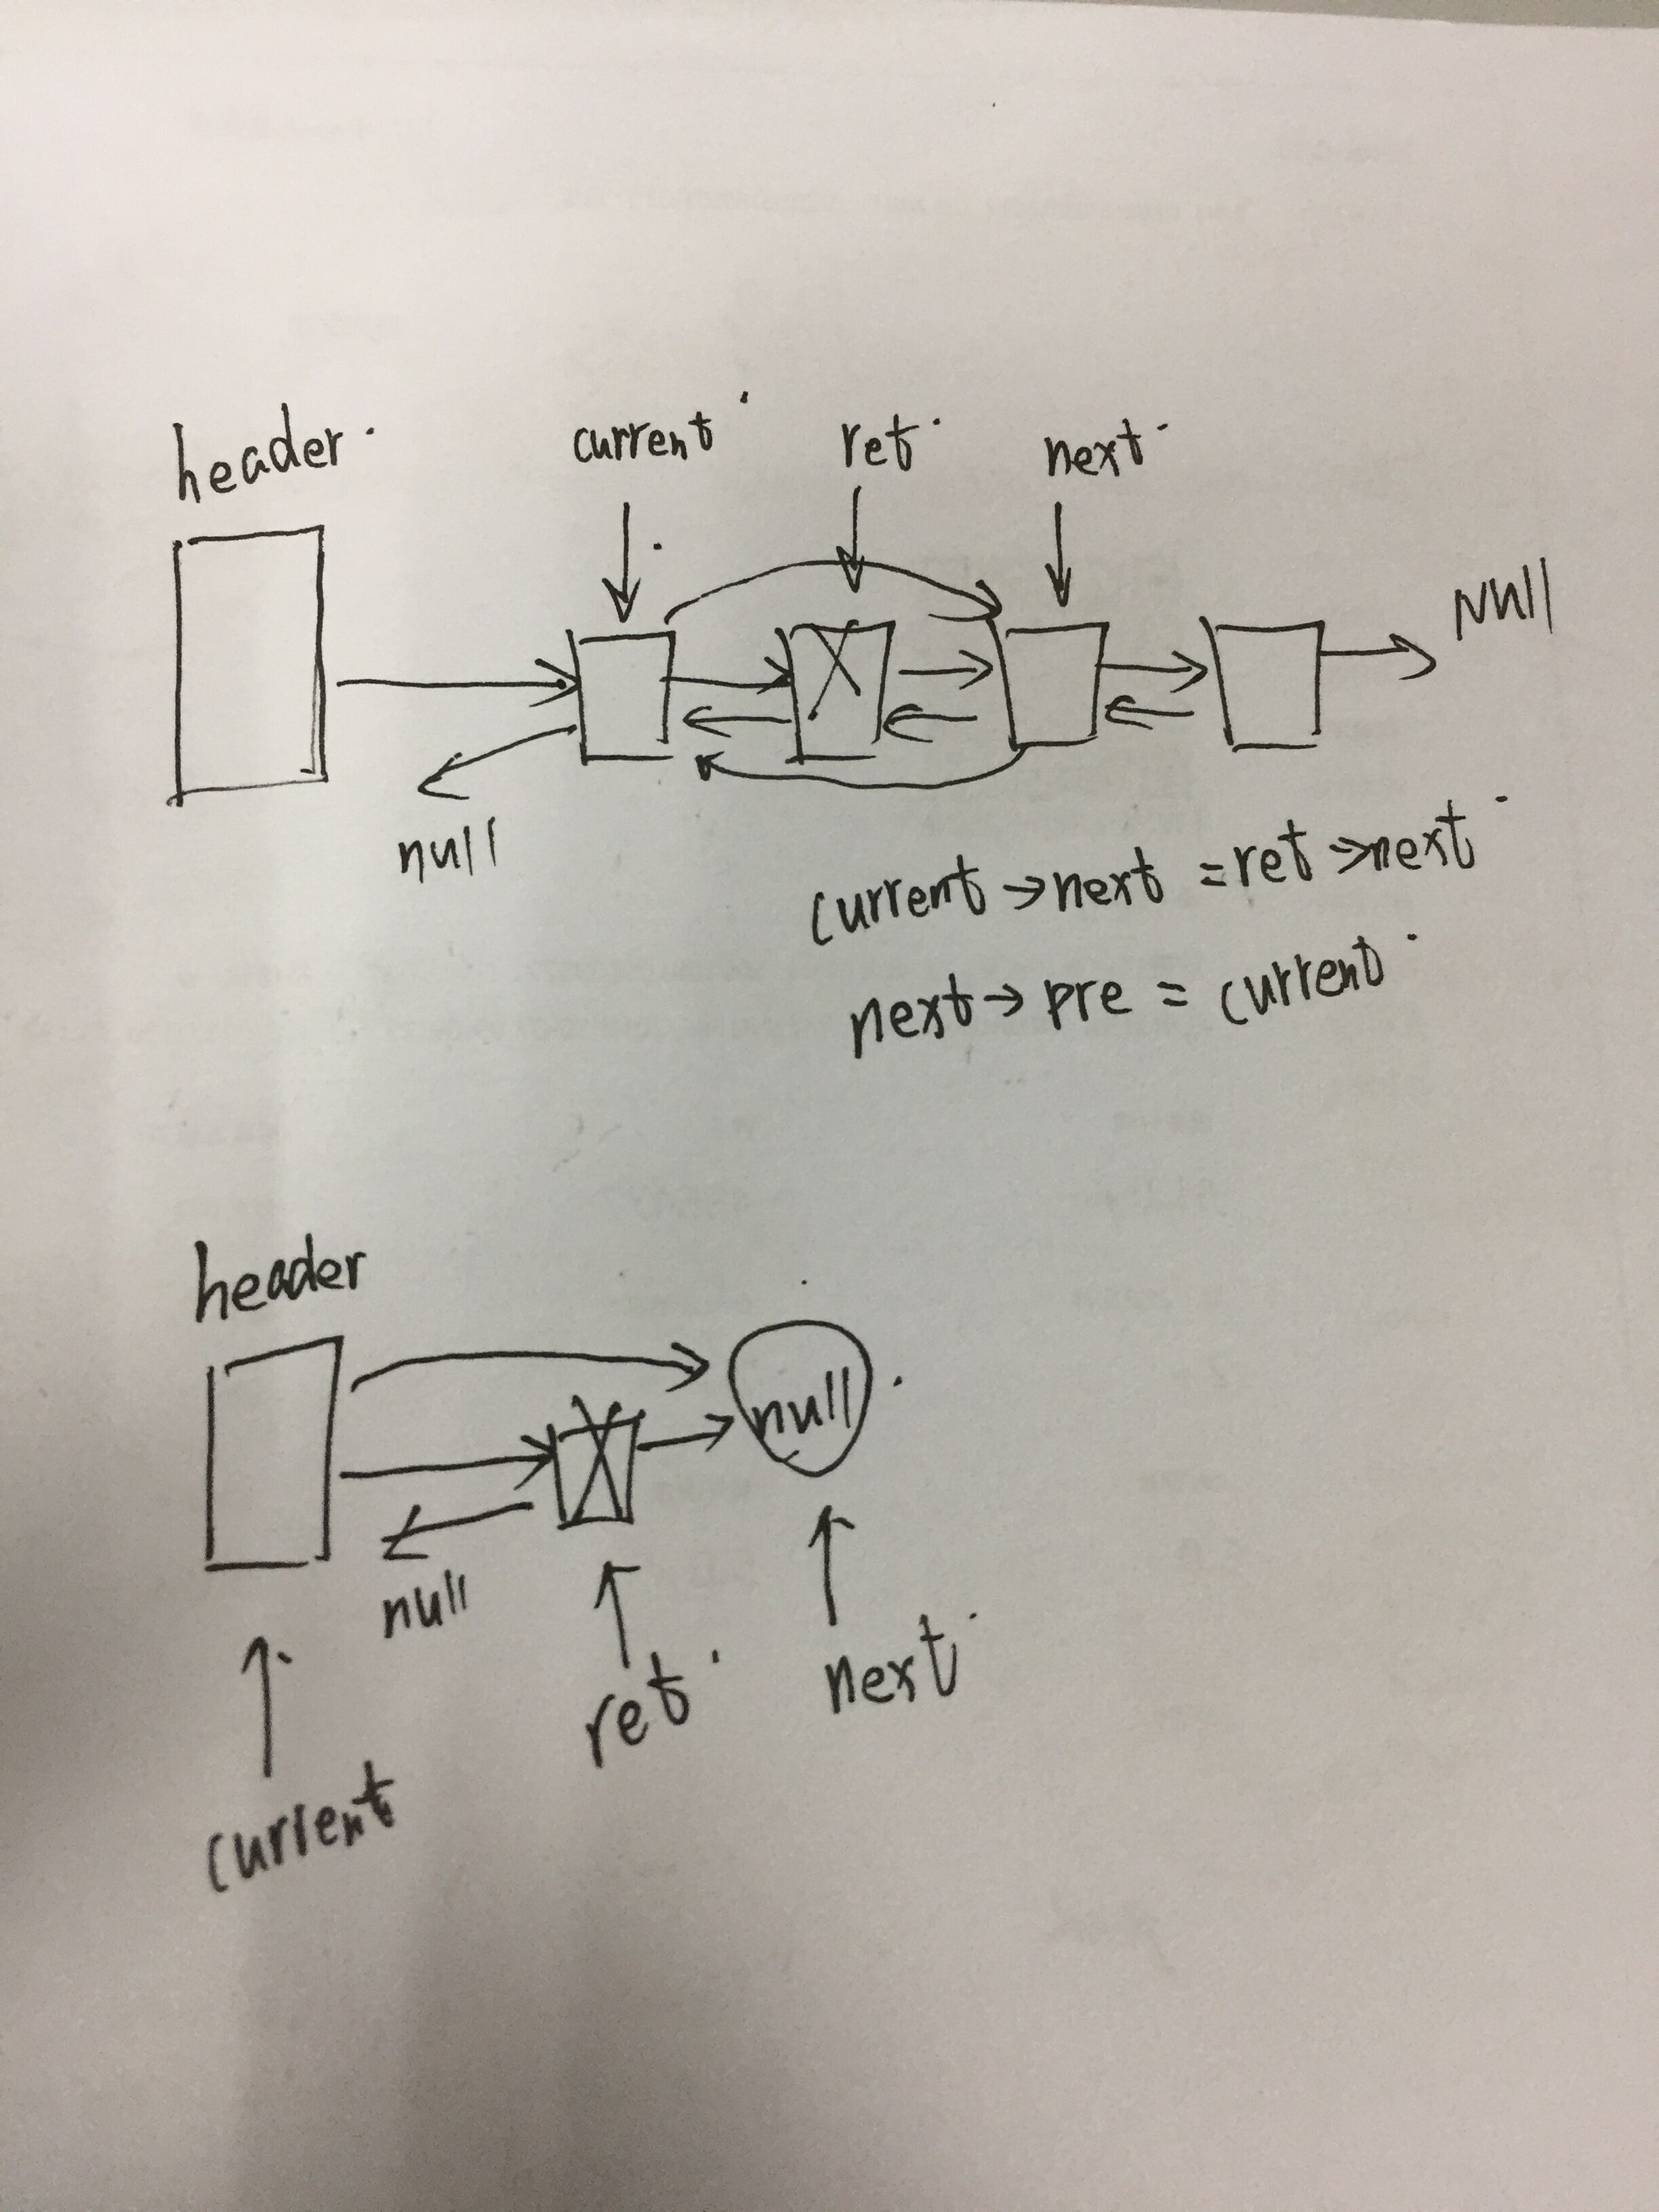 header
current
ret
next
Null
null
current→next = ret→next
next→pre = current
header
null
null
ret
next
current